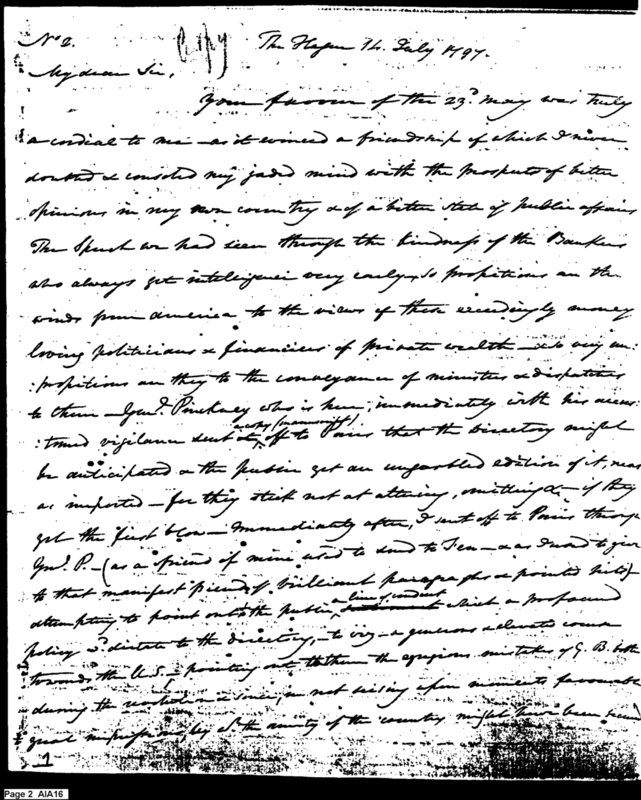 No 2. Copy The Hague 14. July 1797.
My dear Sir,
Your favour of the 23d. May was truly
a cordial to me – as it evinced a friendship of which I never
doubted & consoled my jaded mind with the prospects of better
opinions in my own country & of a better state of public affairs
The Speech we had seen through the kindness of the Bankers
who always get intelligence very early, so propitious are the
winds from America to the views of these exceedingly money
loving politicians & financiers of private wealth – & so very un:
:propitious are they to the conveyance of ministers & dispatches
to them – Genl. Pinckney who is here, immediately with his accus:
:tomed vigilance sent a copy (manuscript) off to Paris that the Directory might
be anticipated & the public get an ungarbled edition of it, near
as imported – for they stick not at altering, omitting &c – if they
get the first blow – Immediately after, I sent off to Paris through
Genl. P – (as a friend of mine used to send to Fen – & as I used to give
to that manifest friend of brilliant paragraphs & pointed hints) –
attempting to point out to the public, a line of conduct which a profound
policy wd. dictate to the directory, – to viz – a generous & elevated course
towards the U.S. – pointing out to them the egregious mistakes of G. B. both
during the war and since, in not seizing upon moments favourable
good impressions, by wh. the amity of the country might have been
1
Page 2 AIA16